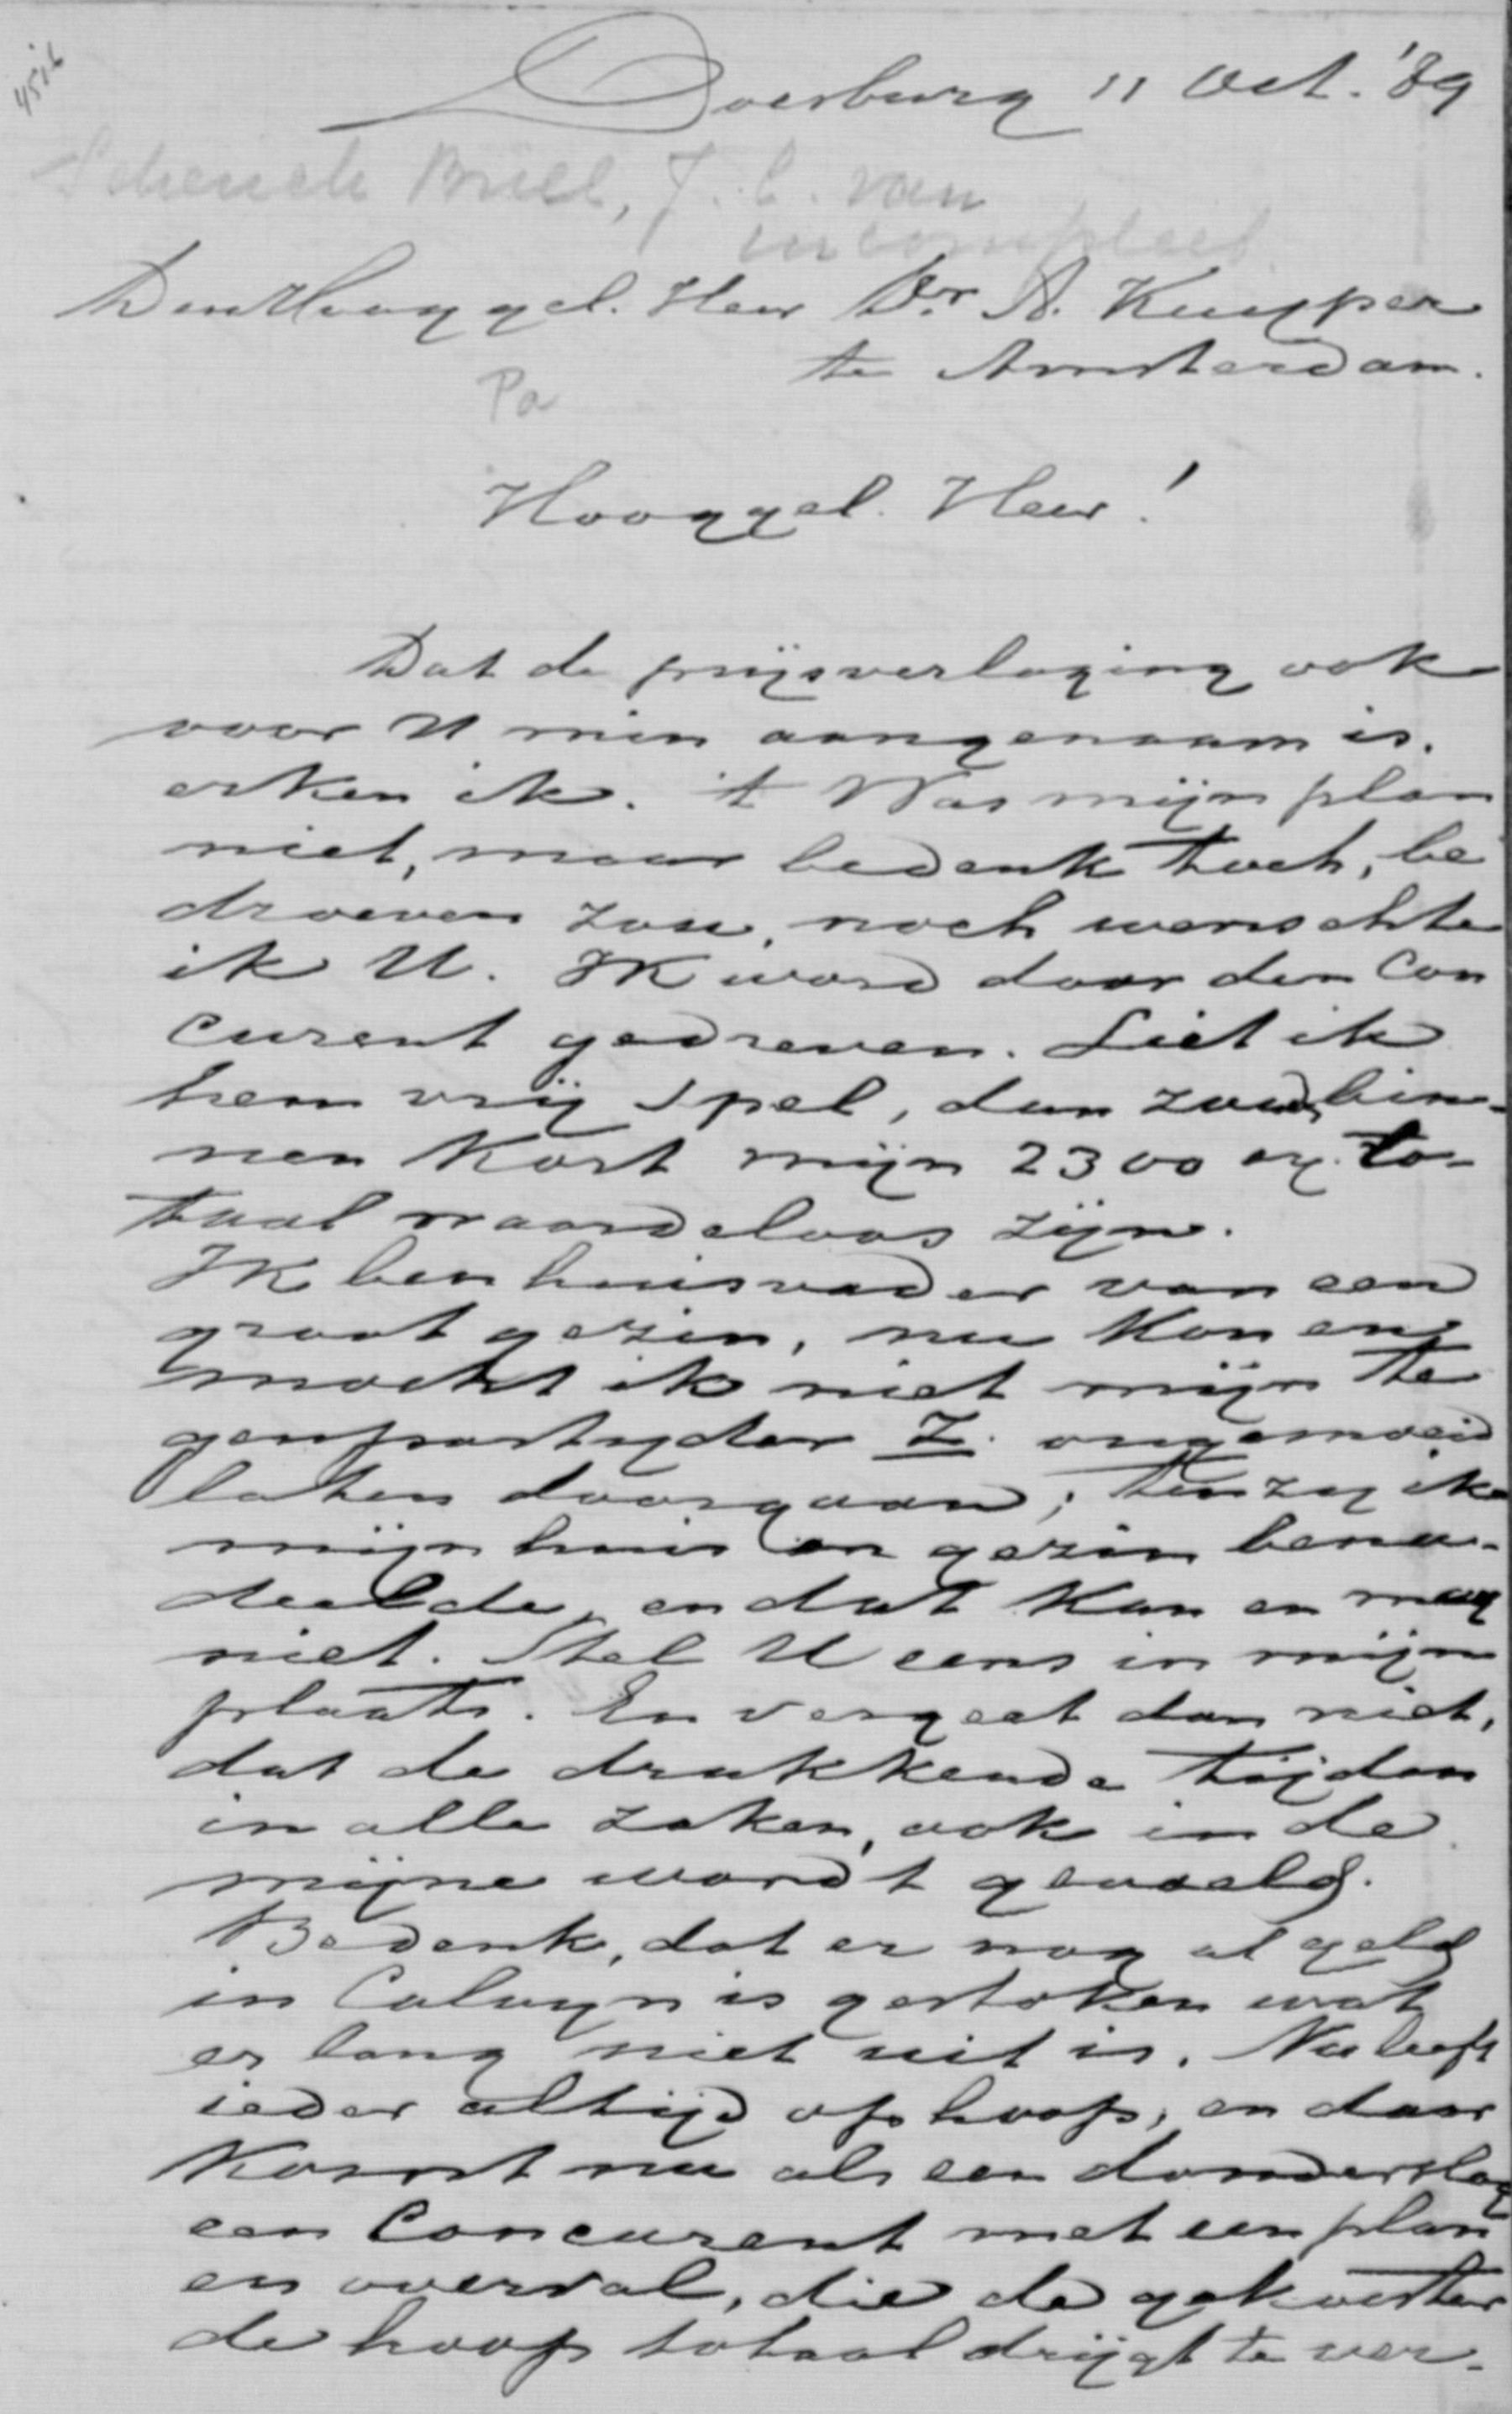 4516
Doesburg 11 Oct. '89
Schenck Brill, J. C. van
incompleet
Den Hooggel. Heer Dr. A. Kuyper
te Amsterdam.
Pa
Hooggel. Heer!
Dat de prijsverlaging ook
voor U min aangenaam is.
erken ik. 't Was mijn plan
niet, maar bedenk toch, be
droeven zou, noch wenschte
ik U. Ik word door den Con
curent gedreven. Liet ik
hem vrij spel, dan zouden bin-
nen Kort mijn 2300 ex. to-
taal waardeloos zijn.
Ik ben huisvader van een
groot gezin, nu Kon en
mocht ik niet mijn te
genpartyder Z. ongemoeid
laten doorgaan; tenzy ik
mijn huis en gezin bena-
deelde, en dat Kan en mag
niet. Stel U eens in mijn
plaats. En vergeet dan niet,
dat de drukkende tijden
in alle zaken, ook in de
mijne wordt gevoeld.
Bedenk, dat er nog al geld
in Calvyn is gestoken wat
er lang niet uit is. Nu leeft
ieder altijd op hoop, en daar
Komt nu als een donderslag
een Concurent met een plan
en overval, die de gekoester
de hoop totaal drijgt te ver-